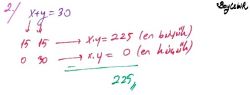 2/ x+y=30
15 15 → x.y = 225 (en büyük)
0 30 → x.y = 0 (en küçük)
225//